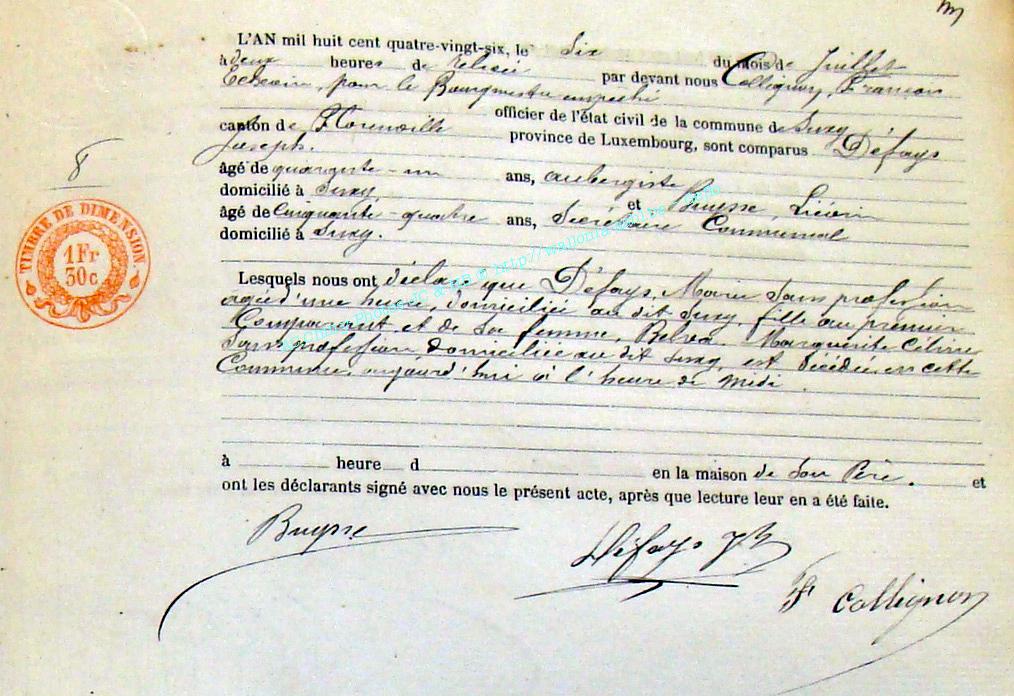 L'AN mil huit cent quatre-vingt-six, le Six du mois de Juillet
à deux heures de relevée par devant nous Collignon, François
Echevin, pour le Bourgmestre empêché
officier de l'état civil de la commune de Suxy
canton de Florenville province de Luxembourg, sont comparus Défays
Joseph.
âgé de quarante-un ans, aubergiste
domicilié à Suxy, et Buysse, Liévin
âgé de Cinquante-quatre ans, Secrétaire Communal
domicilié à Suxy.
Lesquels nous ont déclaré que Défays, Marie sans profession
agée d'une heure, domiciliée au dit Suxy, fille du premier
Comparant et de sa femme, Marguerite
sans profession, domiciliée au dit Suxy, est décédée en cette
Commune, aujourd'hui à l'heure de midi.
à heure d en la maison de son Père. et
ont les déclarants signé avec nous le présent acte, après que lecture leur en a été faite.
Buysse
Défays Jh
F Collignon
8
TIMBRE DE DIMENSION
1 Fr
30c